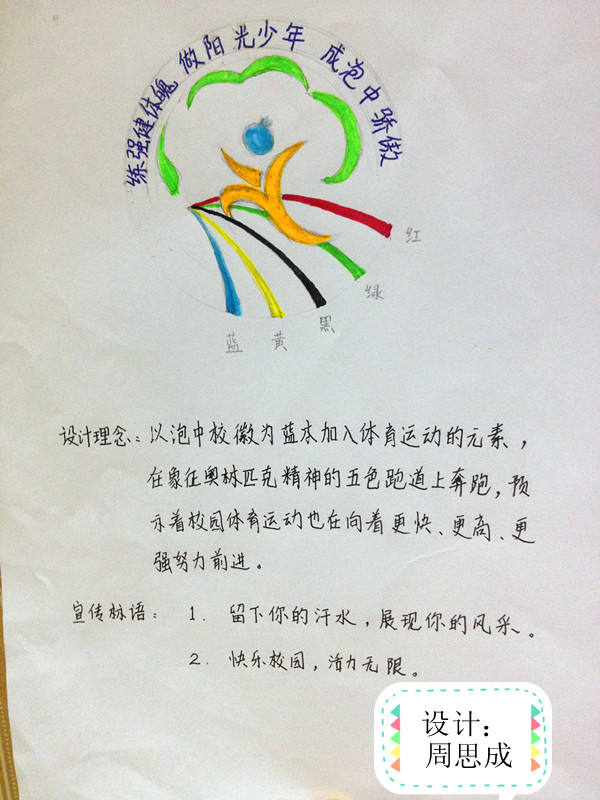 练强健体魄 做阳光少年 成泡中骄傲
红
绿
黑
黄
蓝
设计理念：以泡中校徽为蓝本加入体育运动的元素，
在象征奥林匹克精神的五色跑道上奔跑，预
示着校园体育运动也在向着更快、更高、更
强努力前进。
宣传标语：1. 留下你的汗水，展现你的风采。
2. 快乐校园，活力无限。
设计：
周思成